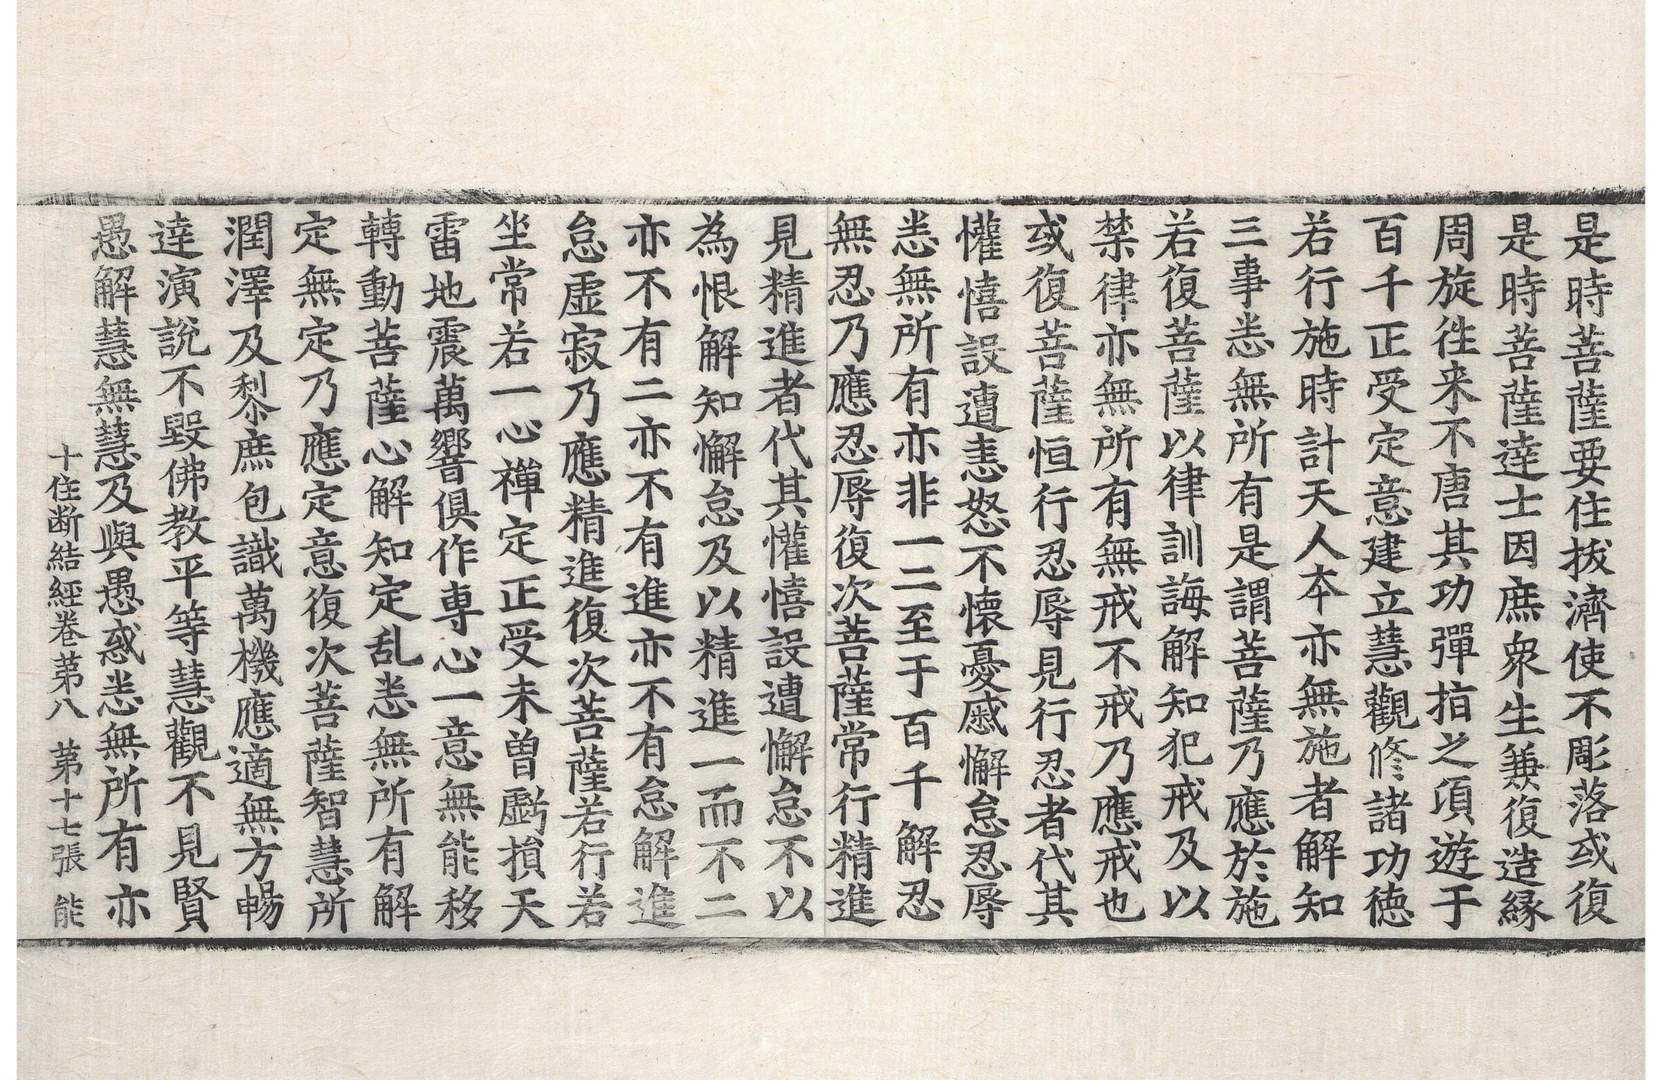 是時菩薩要住拔濟使不彫落或復
是時菩薩達士因庶衆生兼復造縁
周旋往来不唐其功彈指之頃遊于
百千正受定意建立慧觀修諸功徳
若行施時計天人本亦無施者解知
三事悉無所有是謂菩薩乃應於施
若復菩薩以律訓誨解知犯戒及以
禁律亦無所有無戒不戒乃應戒也
或復菩薩恒行忍辱見行忍者代其
懽憘設遭恚怒不懷憂慼懈怠忍辱
悉無所有亦非一二至于百千解忍
無忍乃應忍辱復次菩薩常行精進
見精進者代其懽憘設遭懈怠不以
為恨解知懈怠及以精進一而不二
亦不有二亦不有進亦不有怠解進
怠虛寂乃應精進復次菩薩若行若
坐常若一心禪定正受未曾虧損天
雷地震萬響俱作専心一意無能移
轉動菩薩心解知定乱悉無所有解
定無定乃應定意復次菩薩智慧所
潤澤及黎庶包識萬機應適無方暢
達演說不毀佛教平等慧觀不見賢
愚解慧無慧及與愚惑悉無所有亦
十住断結經卷苐八 苐十七張 能